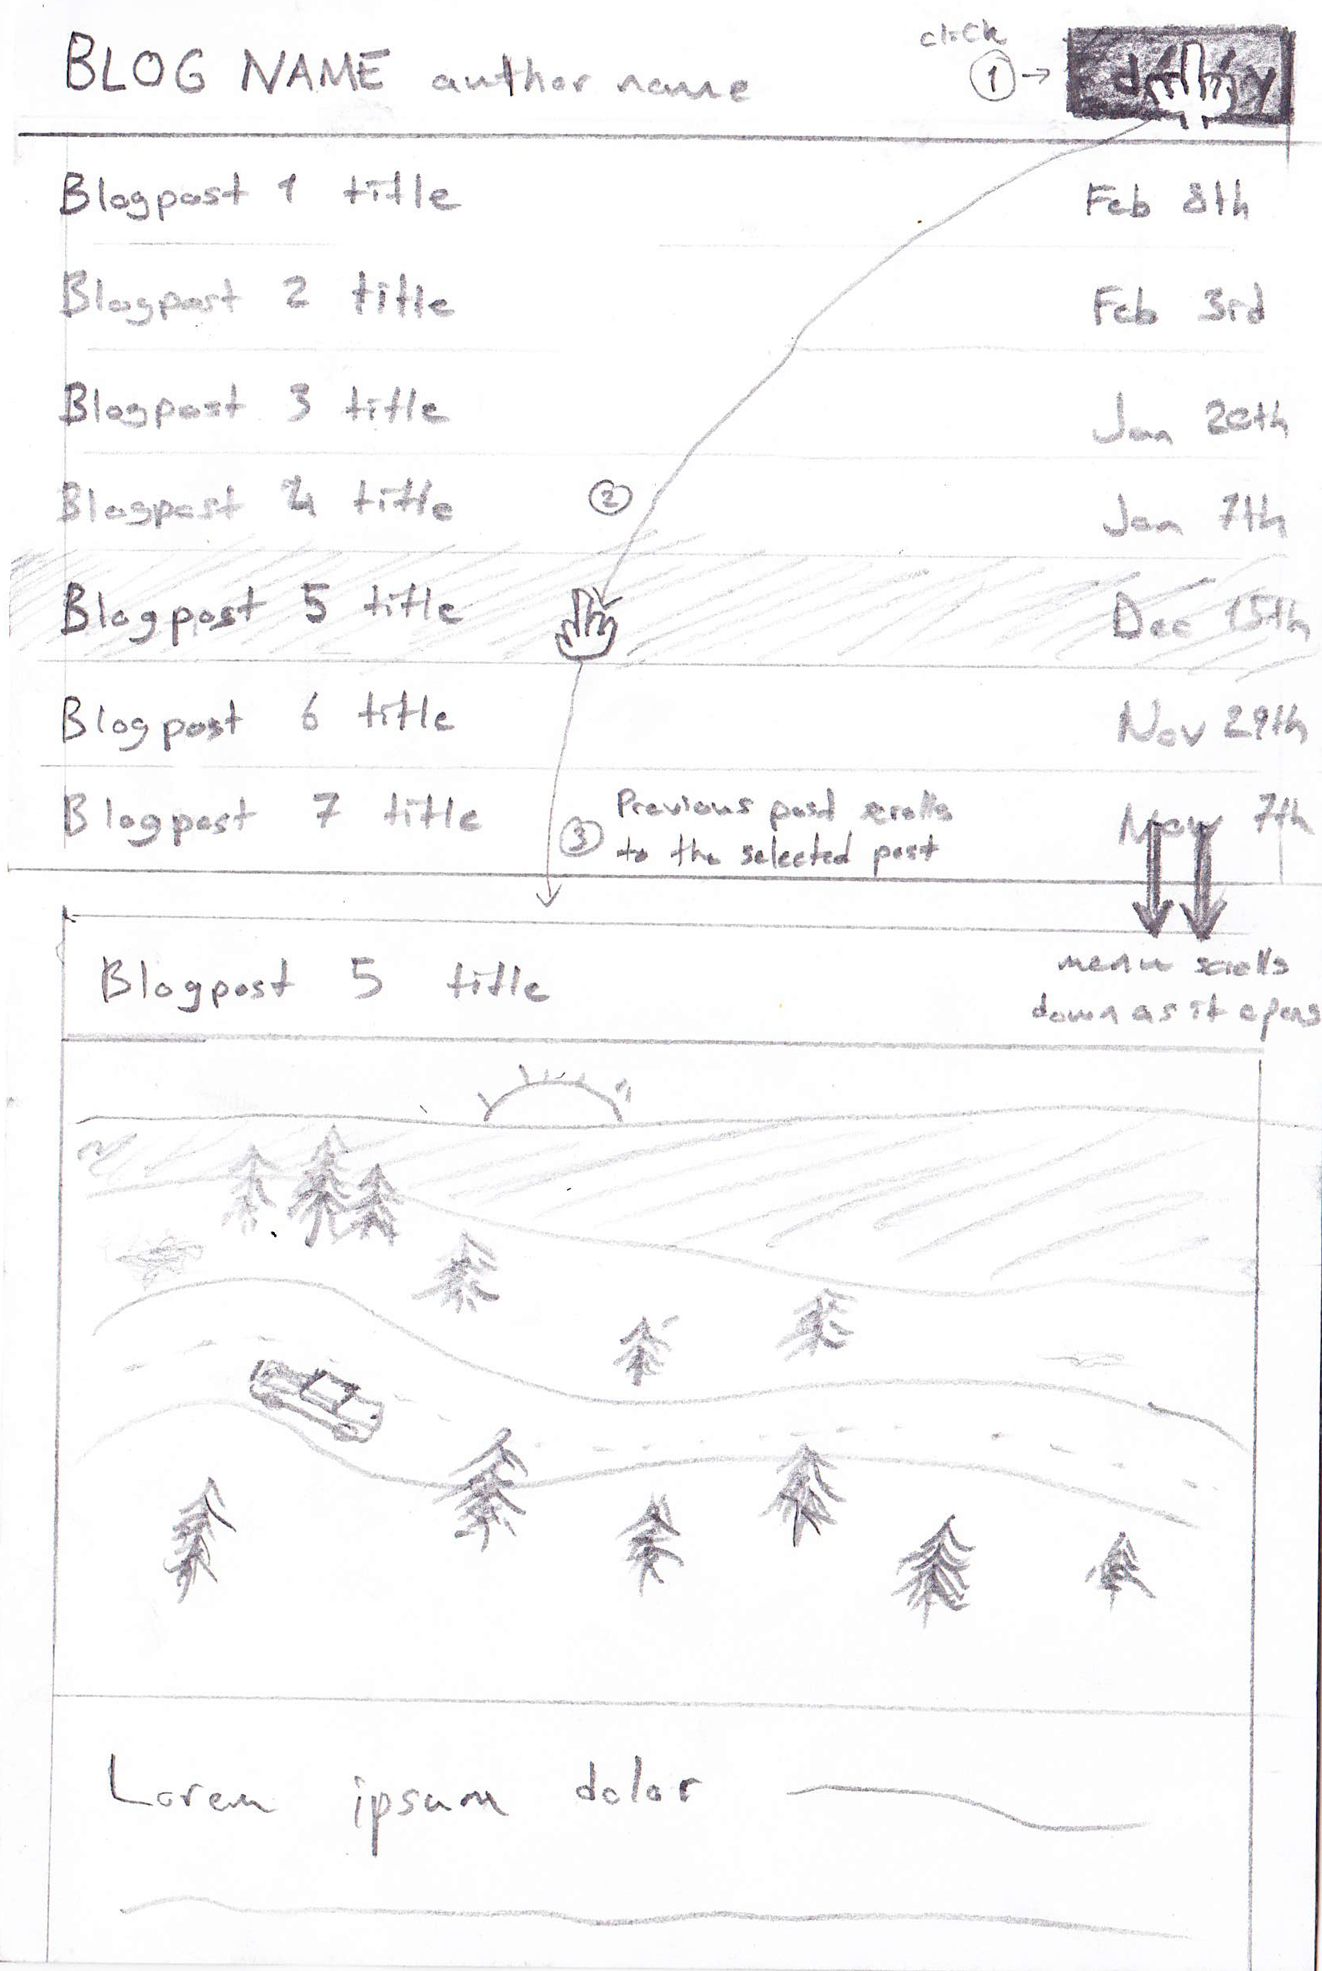 BLOG NAME author name
click
1
Blogpost 1 title Feb 8th
Blogpost 2 title Feb 3rd
Blogpost 3 title Jan 20th
Blogpost 4 title Jan 7th
2
Blogpost 5 title Dec 15th
Blogpost 6 title Nov 29th
Blogpost 7 title Nov 7th
3 Previous post scrolls
to the selected post
menu scrolls
down as it opens
Blogpost 5 title
Lorem ipsum dolor